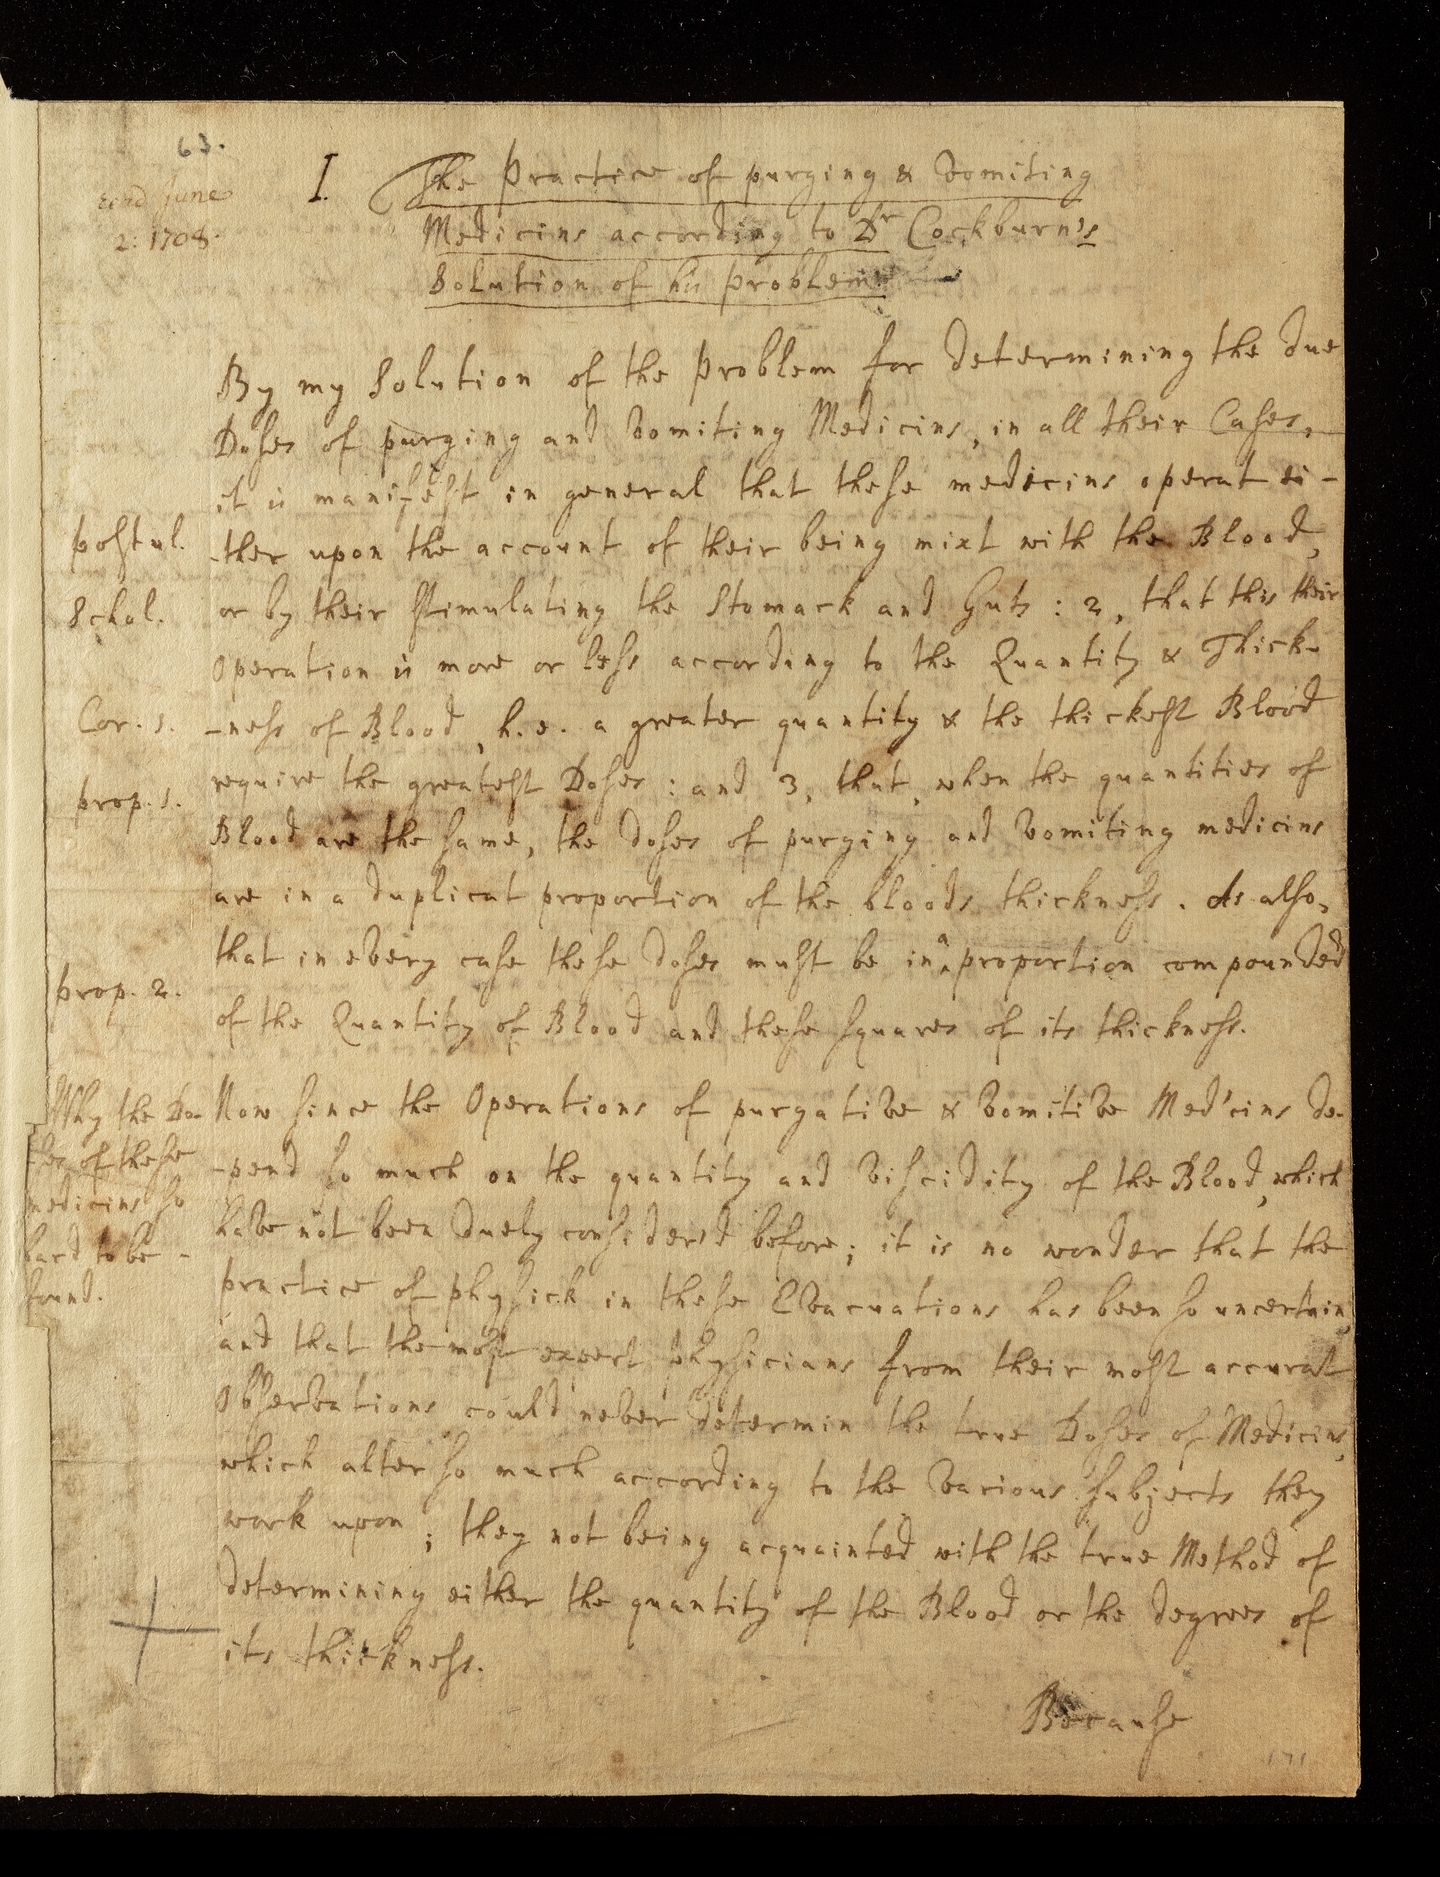 63.
read June
2: 1708.
I. The Practice of purging & vomiting
Medicins according to Dr Cockburn's
Solution of his problem
By my Solution of the Problem for determining the due
Doses of purging and vomiting Medicins, in all their Cases,
it is manifest in general that these medicins operat ei-
postul.
-ther upon the account of their being mixt with the Blood,
Schol.
or by their Stimulating the Stomack and Guts : 2, that this their
Operation is more or less according to the Quantity & Thick-
Cor. 1.
-ness of Blood, h.e. a greater quantity & the thickest Blood
prop. 1.
require the greatest Doses : and 3, that, when the quantities of
Blood are the same, the doses of purging and vomiting medicins
are in a duplicat proportion of the bloods thickness. As also,
that in every case these doses must be in a proportion compounded
prop. 2.
of the Quantity of Blood and these squares of its thickness.
Why the Do-
ses of these
medicins so
hard to be -
found.
Now since the Operations of purgative & vomitive Med'cins de-
-pend so much on the quantity and viscidity of the Blood, which
have not been duely considerd before; it is no wonder that the
practice of physick in these Evacuations has been so uncertain,
and that the most expert physicians from their most accurat
Observations could never determin the true Doses of Medicins,
which alter so much according to the various subjects they
work upon; they not being acquainted with the true Method of
determining either the quantity of the Blood or the degrees of
its thickness.
Because
171